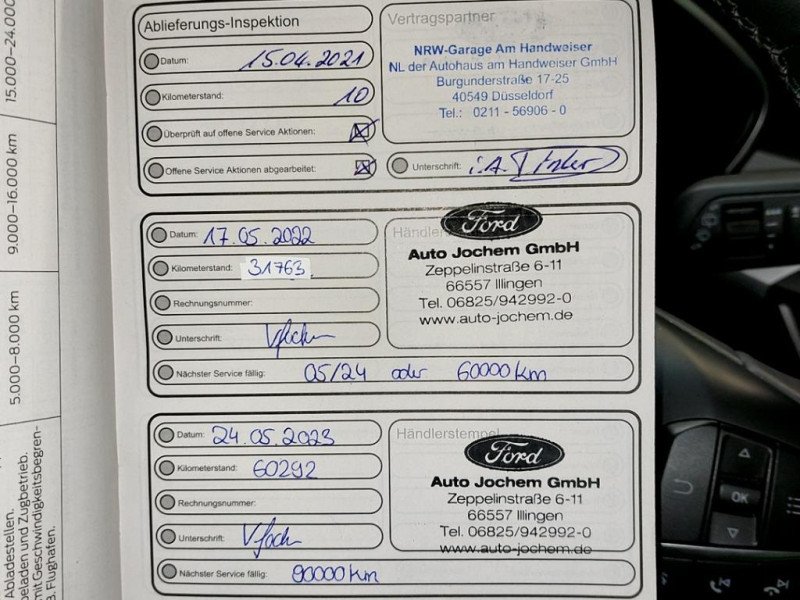 Ablieferungs-Inspektion
Datum: 15.04.2021
Kilometerstand: 10
Überprüft auf offene Service Aktionen:
Offene Service Aktionen abgearbeitet:
Vertragspartner
NRW-Garage Am Handweiser
NL der Autohaus am Handweiser GmbH
Burgunderstraße 17-25
40549 Düsseldorf
Tel.: 0211 - 56906 - 0
Unterschrift: i.A.
Datum: 17.05.2022
Kilometerstand: 31763
Rechnungsnummer:
Unterschrift:
Nächster Service fällig: 05/24 oder 60000 km
Ford
Auto Jochem GmbH
Zeppelinstraße 6-11
66557 Illingen
Tel. 06825/942992-0
www.auto-jochem.de
Datum: 24.05.2023
Kilometerstand: 60292
Rechnungsnummer:
Unterschrift:
Nächster Service fällig: 90000 km
Händlerstempel
Ford
Auto Jochem GmbH
Zeppelinstraße 6-11
66557 Illingen
Tel. 06825/942992-0
www.auto-jochem.de
15.000–24.000
9.000–16.000 km
5.000–8.000 km
Abladestellen.
beladen und Zugbetrieb.
mit Geschwindigkeitsbegren-
B. Flughafen.
OK